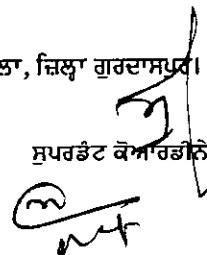 ਲਾ, ਜ਼ਿਲ੍ਹਾ ਗੁਰਦਾਸਪੁਰ।
ਸੁਪਰਡੰਟ ਕੋਆਰਡੀਨੇ